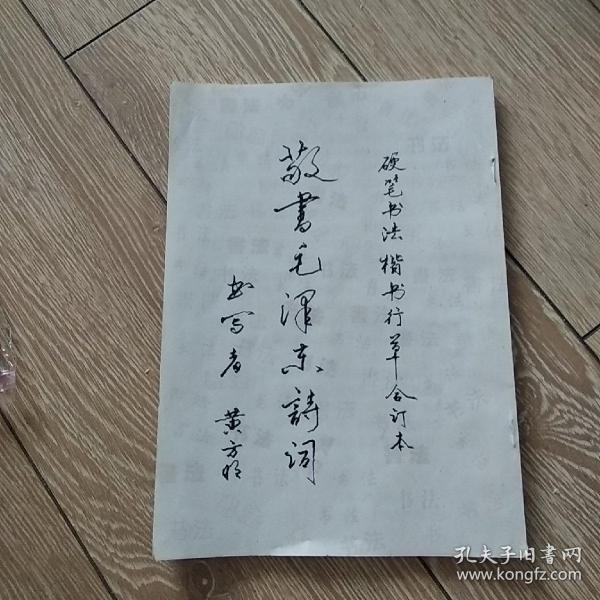 硬笔书法楷书行草合订本
敬書毛澤东詩词
书写者 黄方明
孔夫子旧書网
www.kongfz.com